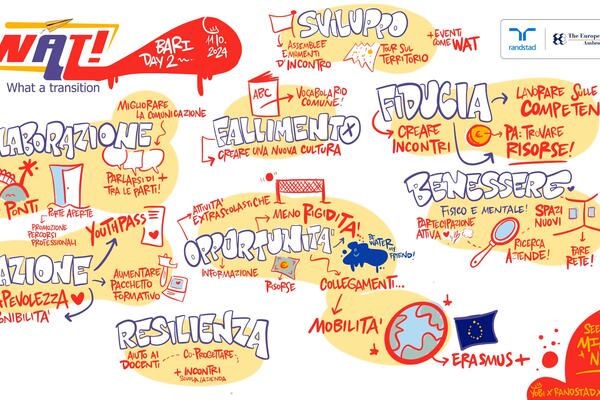 WAT!
What a transition
BARI
DAY 2
11/10
2024
SVILUPPO
ASSEMBLEE
MOMENTI
D'INCONTRO
TOUR SUL
TERRITORIO
+ EVENTI
COME WAT
randstad
The European
MIGLIORARE
LA COMUNICAZIONE
LABORAZIONE
PARLARSI DI +
TRA LE PARTI!
PONTI
PORTE APERTE
PROMOZIONE
PERCORSI
PROFESSIONALI
ABC
VOCABOLARIO
COMUNE!
FALLIMENTO
CREARE UNA NUOVA CULTURA
FIDUCIA
LAVORARE SULLE
COMPETEN
CREARE
INCONTRI
PA: TROVARE
RISORSE!
BENESSERE
FISICO E MENTALE!
PARTECIPAZIONE
ATTIVA
SPAZI
NUOVI
RICERCA
AZIENDE!
FARE
RETE!
YOUTHPASS
AZIONE
PEVOLEZZA
NIBILITA'
AUMENTARE
PACCHETTO
FORMATIVO
ATTIVITÀ
EXTRASCOLASTICHE
MENO RIGIDITA'!
OPPORTUNITA'
BE
WATER
MY
FRIEND!
INFORMAZIONE
RISORSE
COLLEGAMENTI...
MOBILITA'
ERASMUS +
RESILIENZA
AIUTO AI
DOCENTI
CO-PROGETTARE
+ INCONTRI
SCUOLA/AZIENDA
SEE
MI
N
YOBI X RANDSTAD X